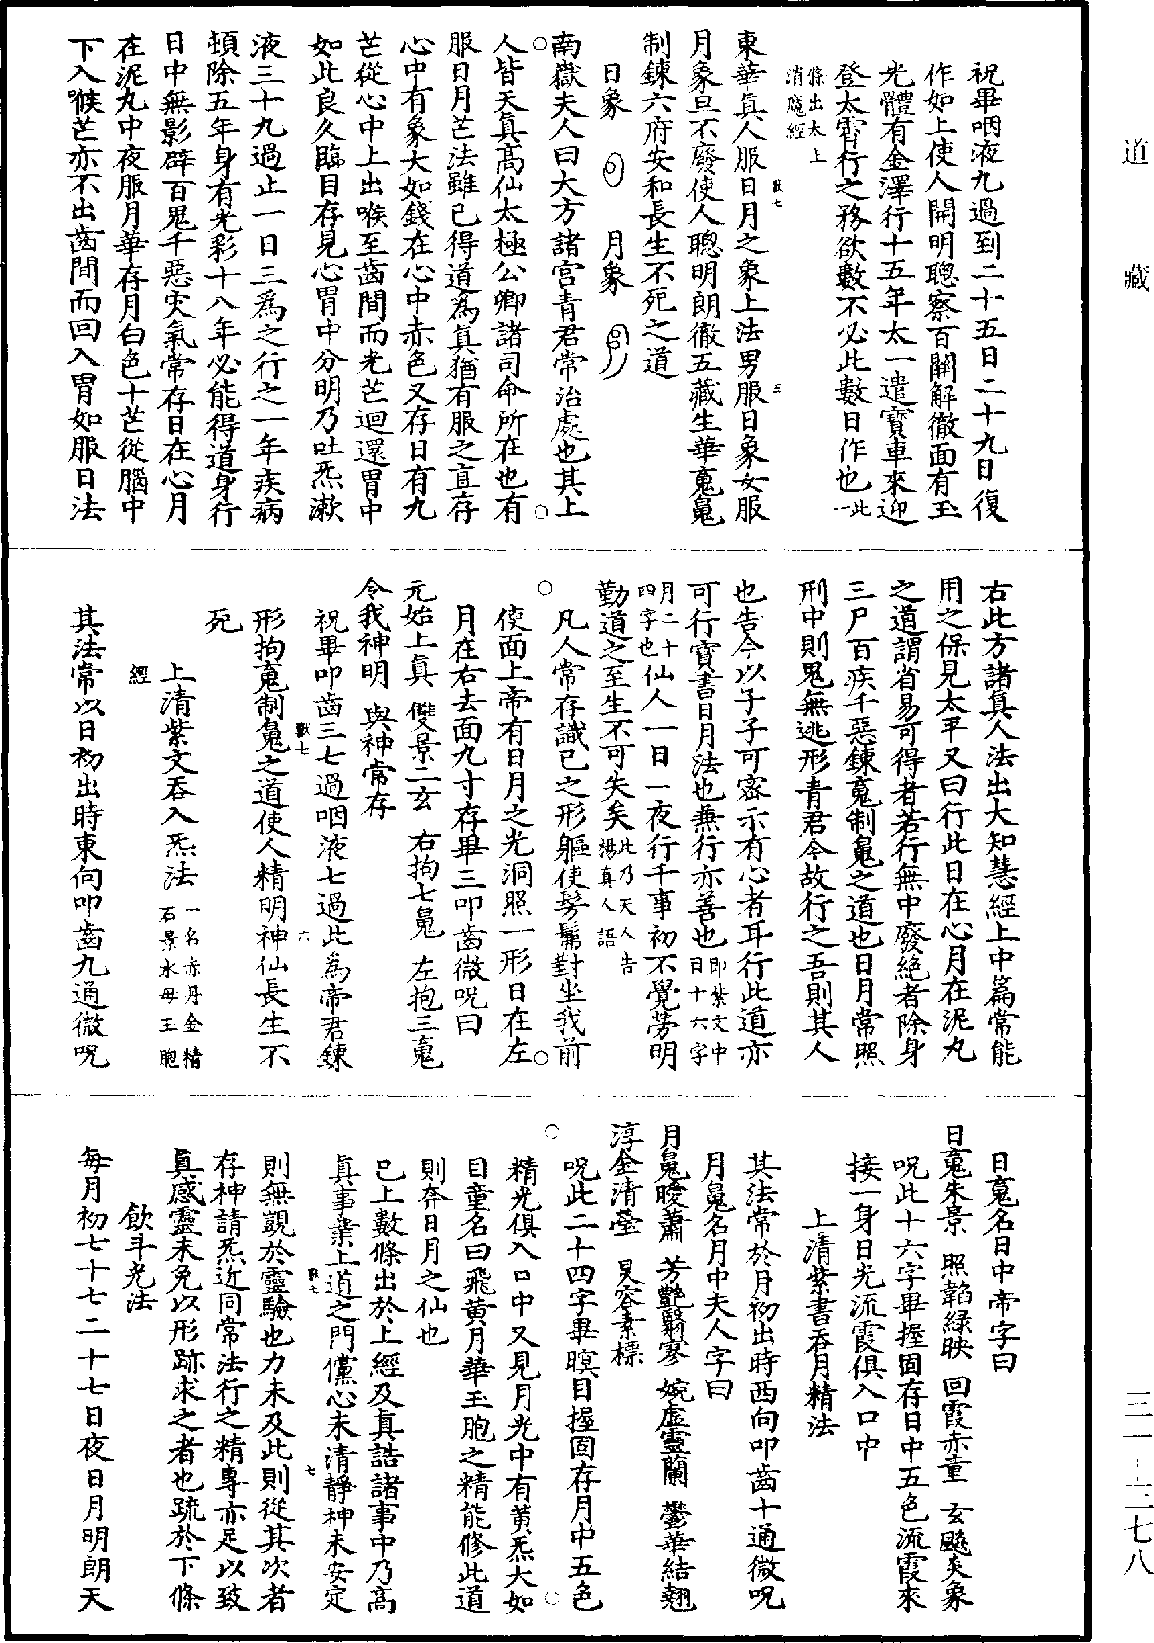 道藏
祝畢咽液九過到二十五日二十九日復
作如上使人開明聰察百關解徹面有玉
光體有金澤行十五年太一遣寶車來迎
登太霄行之務欲數不必此數日作也此一
條出太上
消魔經
數七
三
東華真人服日月之象上法男服日象女服
月象旦不廢使人聰明朗徹五藏生華䰟鬼
制鍊六府安和長生不死之道
日象
月象
南嶽夫人曰大方諸宮青君常治處也其上
人皆天真高仙太極公卿諸司命所在也有
服日月芒法雖已得道為真猶有服之直存
心中有象大如錢在心中赤色又存日有九
芒從心中上出喉至齒間而光芒迴還胃中
如此良久臨目存見心胃中分明乃吐炁漱
液三十九過止一日三為之行之一年疾病
頓除五年身有光彩十八年必能得道身行
日中無影辟百鬼千惡災氣常存日在心月
在泥丸中夜服月華存月白色十芒從腦中
下入喉芒亦不出齒間而回入胃如服日法
右此方諸真人法出大知慧經上中篇常能
用之保見太平又曰行此日在心月在泥丸
之道謂省易可得者若行無中廢絕者除身
三尸百疾千惡鍊䰟制鬼之道也日月常照
刑中則鬼無逃形青君今故行之吾則其人
也告今以子子可密示有心者耳行此道亦
可行寶書日月法也兼行亦善也即紫文中
日十六字
月二十
四字也仙人一日一夜行千事初不覺勞明
勤道之至生不可失矣此乃天人告
楊真人語
凡人常存識己之形軀使髣髴對坐我前
使面上帝有日月之光洞照一形日在左
月在右去面九寸存畢三叩齒微呪曰
元始上真 雙景二玄 右拘七鬼 左抱三䰟
令我神明 與神常存
祝畢叩齒三七過咽液七過此為帝君鍊
數七
六
形拘䰟制鬼之道使人精明神仙長生不
死
上清紫文吞入炁法一名赤丹金精
石景水母玉胞
經
其法常以日初出時東向叩齒九通微呪
日䰟名日中帝字曰
日䰟朱景 照韜綠映 回霞赤童 玄颷炎象
呪此十六字畢握固存日中五色流霞來
接一身日光流霞俱入口中
上清紫書吞月精法
其法常於月初出時西向叩齒十通微呪
月鬼名月中夫人字曰
月鬼曖蕭 芳艷翳寥 婉虛靈蘭 鬱華結翹
淳金清瑩 炅容素標
呪此二十四字畢瞑目握固存月中五色
精光俱入口中又見月光中有黃炁大如
目童名曰飛黃月華玉胞之精能修此道
則奔日月之仙也
已上數條出於上經及真誥諸事中乃高
真事業上道之門儻心未清靜神未安定
數七
七
則無覿於靈驗也力未及此則從其次者
存神請炁近同常法行之精專亦足以致
真感靈未免以形跡求之者也疏於下條
飲斗光法
每月初七十七二十七日夜日月明朗天
三一—二七八